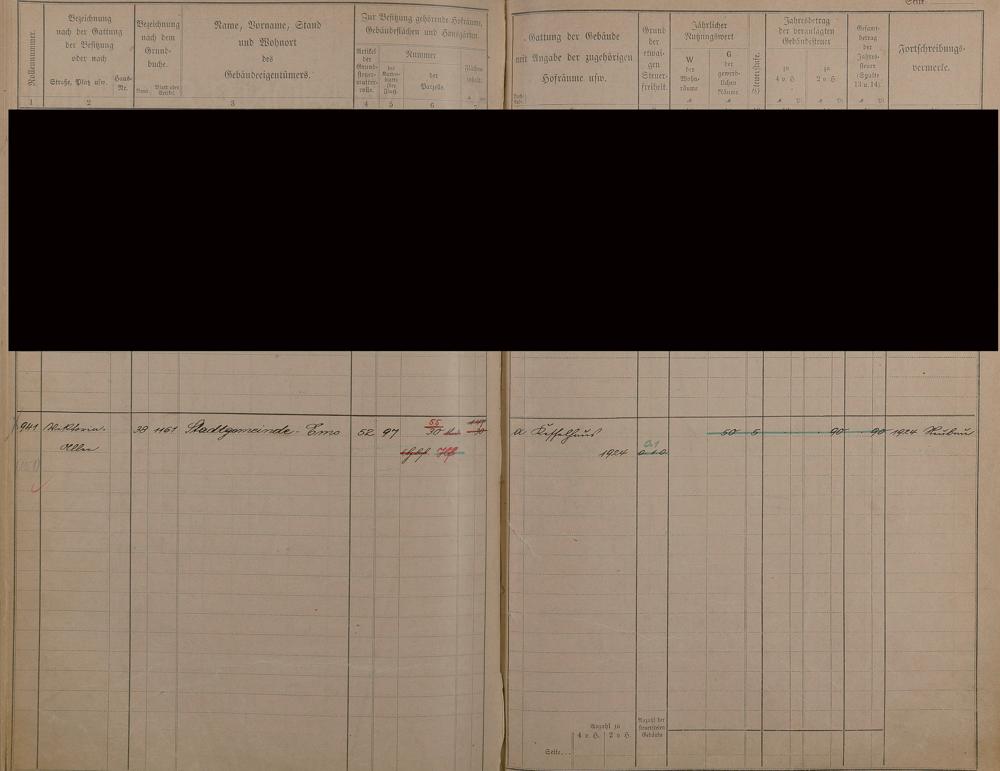 Seite
Rollennummer.
Bezeichnung
nach der Gattung
der Besitzung
oder nach
Straße, Platz usw.
Haus-
Nr.
Bezeichnung
nach dem
Grund-
buche.
Band.
Blatt oder
Artikel.
Name, Vorname, Stand
und Wohnort
des
Gebäudeeigentümers.
Zur Besitzung gehörende Hofräume,
Gebäudeflächen und Hausgärten.
Artikel
der
Grund-
steuer-
mutter-
rolle.
Nummer
des
Karten-
blatts
der
Parzelle.
Flächen-
inhalt.
1 2 3 4 5 6 7
Gattung der Gebäude
mit Angabe der zugehörigen
Hofräume usw.
Grund
der
etwai-
gen
Steuer-
freiheit.
Jährlicher
Nutzungswert
W
der
Wohn-
räume
G
der
gewerb-
lichen
Räume
Steuerstufe.
Jahresbetrag
der veranlagten
Gebäudesteuer
zu
4 v. H.
zu
2 v. H.
Gesamt-
betrag
der
Jahres-
steuer
(Spalte
13 u. 14).
Fortschreibungs-
vermerke.
941 Viktoria- 38 1161 Stadtgemeinde Ems 52 97 55
Allee
a Kesselhaus 50 5 90 90 1924 Neubau
1924
Anzahl zu
4 v. H. 2 v. H.
Anzahl der
steuerfreien
Gebäude
Seite...